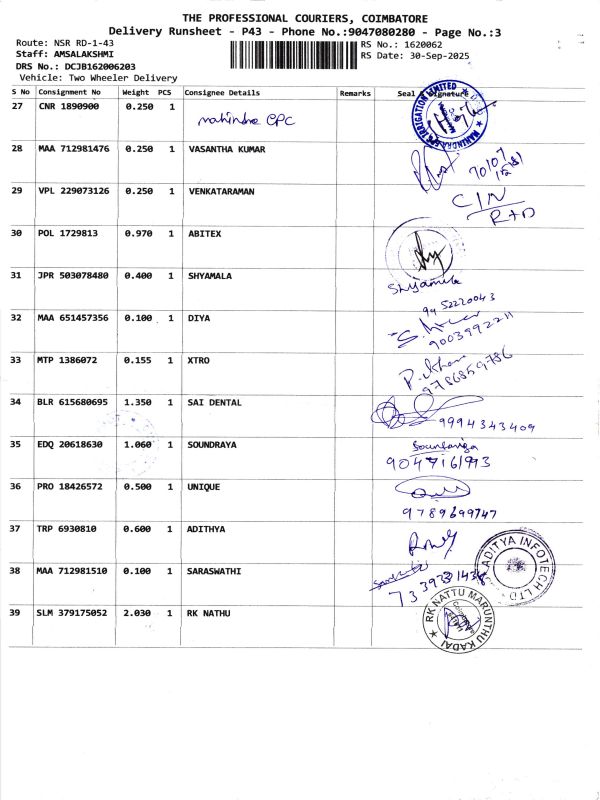 THE PROFESSIONAL COURIERS, COIMBATORE
Delivery Runsheet - P43 - Phone No.:9047080280 - Page No.:3
Route: NSR RD-1-43 RS No.: 1620062
Staff: AMSALAKSHMI RS Date: 30-Sep-2025
DRS No.: DCJB162006203
Vehicle: Two Wheeler Delivery
S No Consignment No Weight PCS Consignee Details Remarks Seal & Signature
27 CNR 1890900 0.250 1 mahindra EPC
28 MAA 712981476 0.250 1 VASANTHA KUMAR
70107
29 VPL 229073126 0.250 1 VENKATARAMAN C/N
R+D
30 POL 1729813 0.970 1 ABITEX
31 JPR 503078480 0.400 1 SHYAMALA Shyamala
9952220043
32 MAA 651457356 0.100 1 DIYA
9003992211
33 MTP 1386072 0.155 1 XTRO
9786859786
34 BLR 615680695 1.350 1 SAI DENTAL
9994343409
35 EDQ 20618630 1.060 1 SOUNDRAYA
9047161993
36 PRO 18426572 0.500 1 UNIQUE
9789699747
37 TRP 6930810 0.600 1 ADITHYA
ADITYA INFOTECH LTD
38 MAA 712981510 0.100 1 SARASWATHI
39 SLM 379175052 2.030 1 RK NATHU
RK NATTU MARUNTHU KADAI